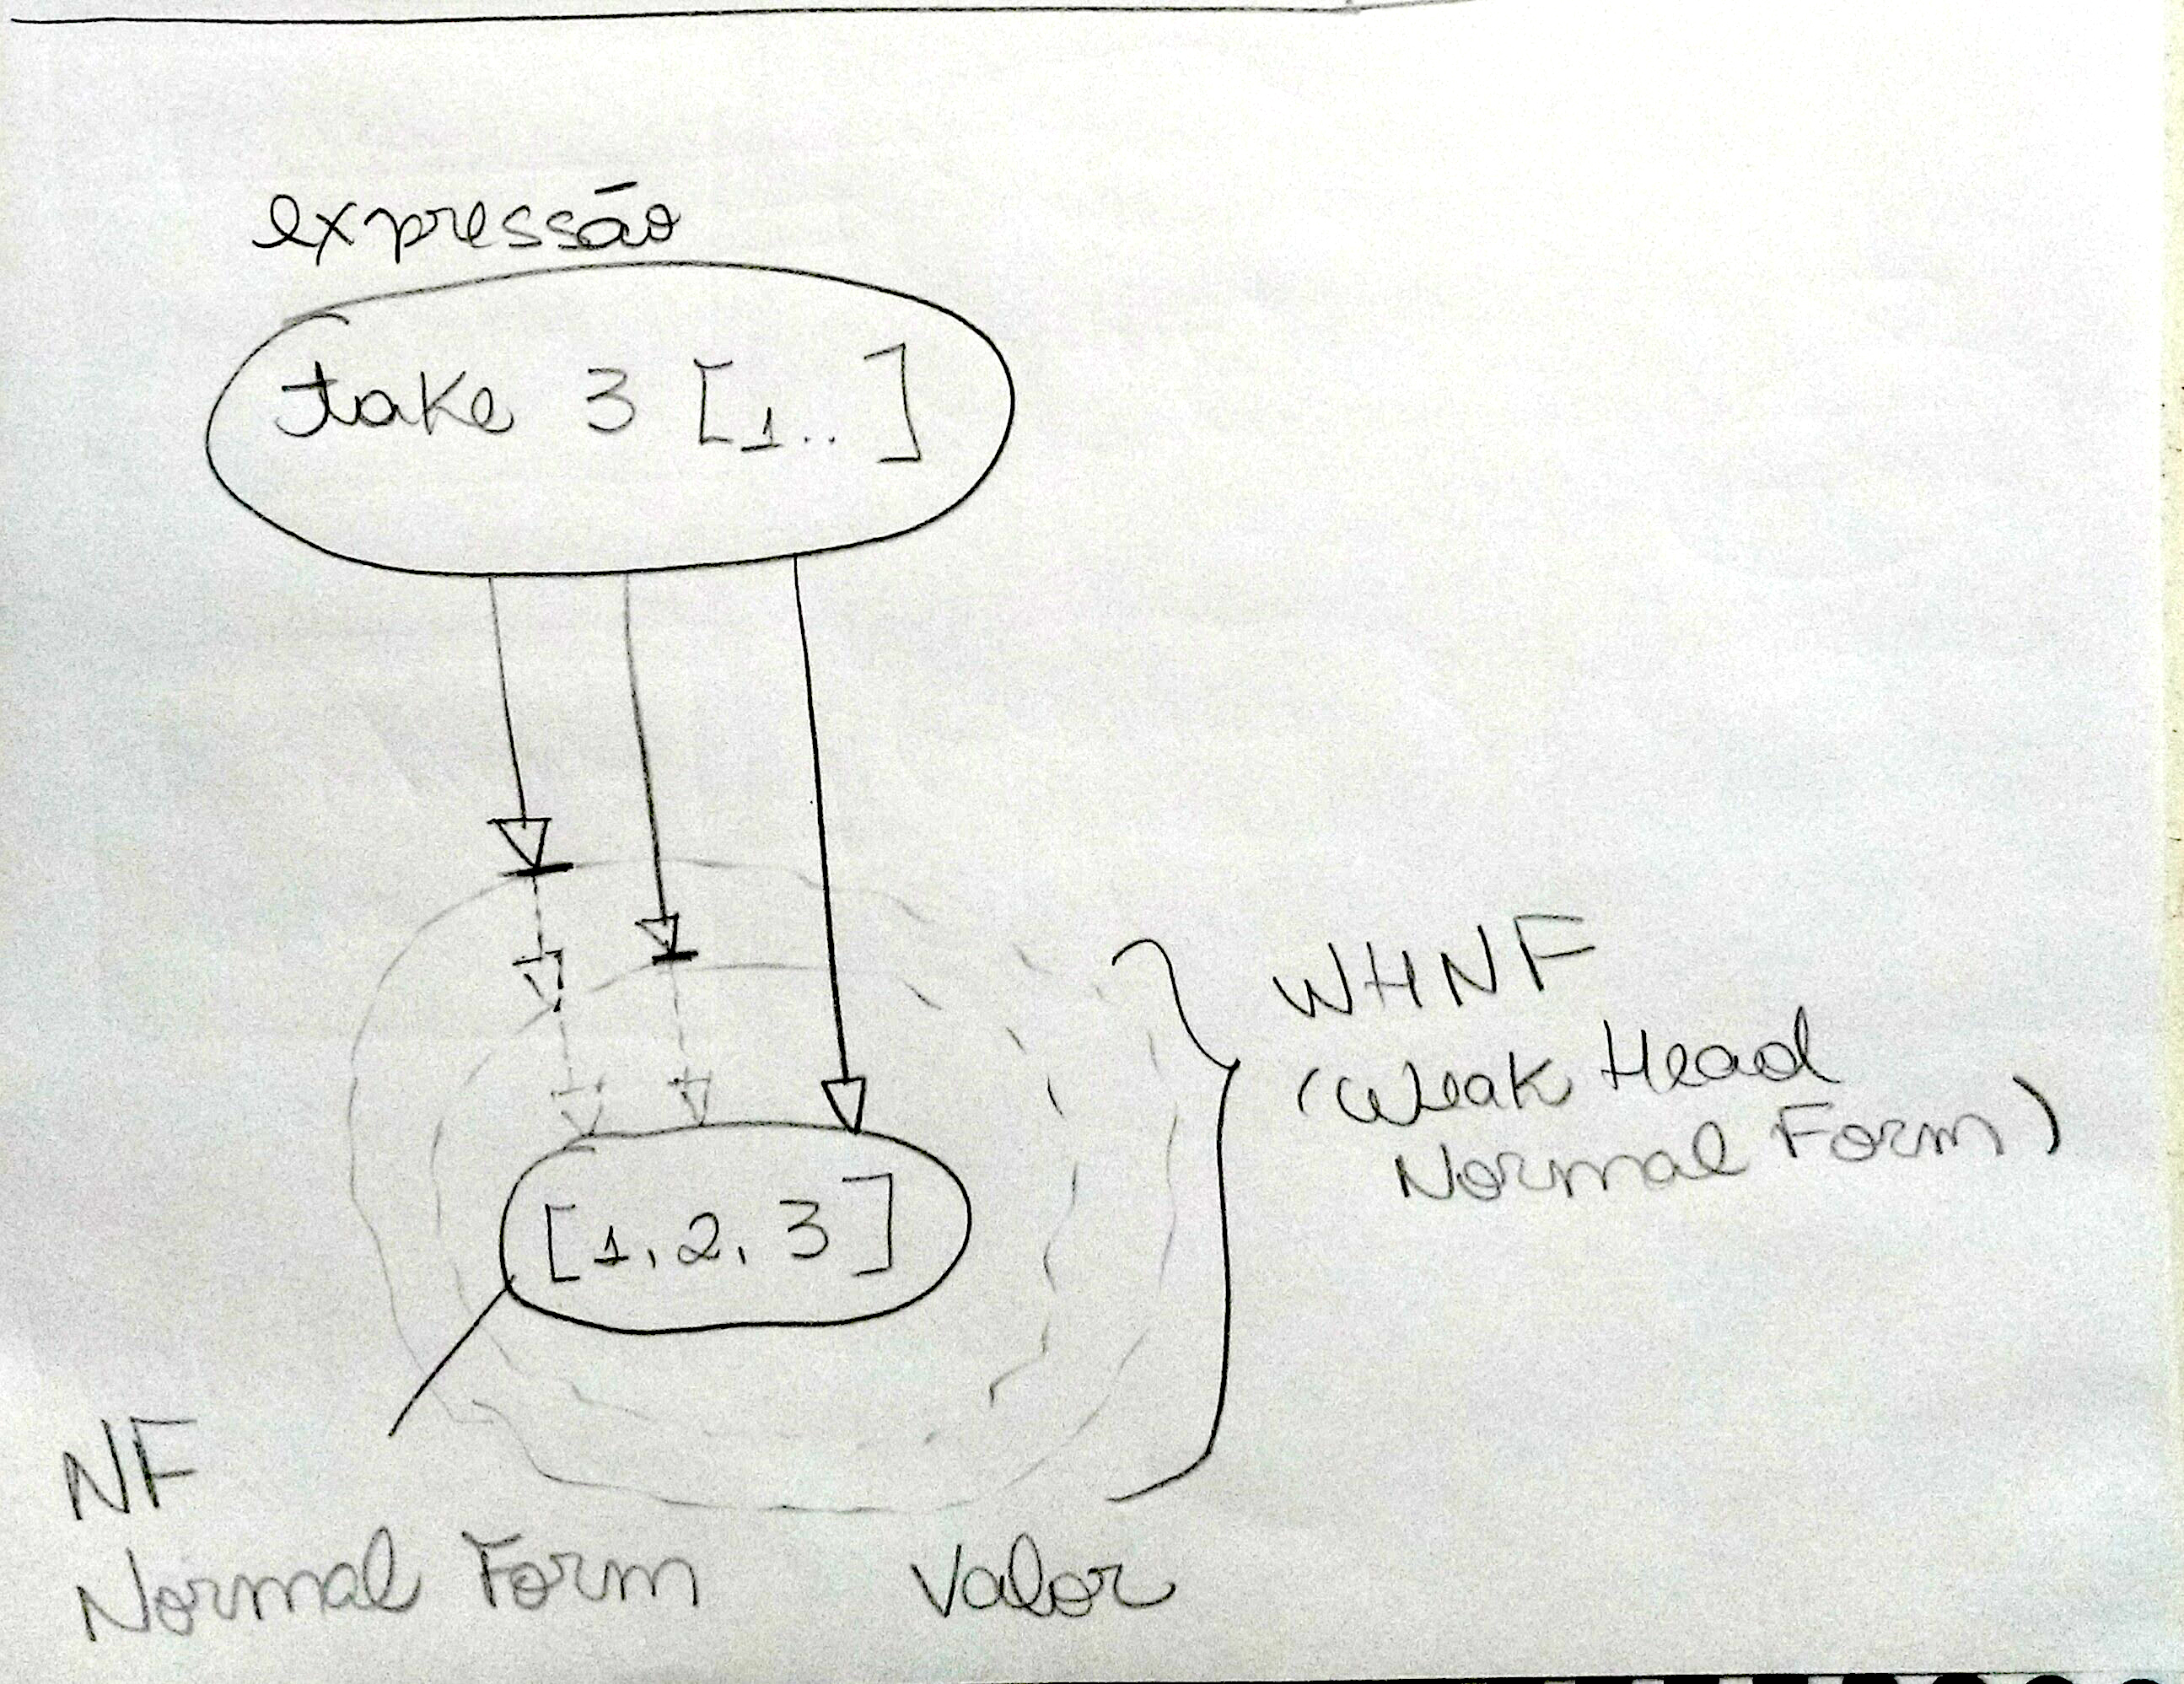 expressão
take 3 [1..]
WHNF
(Weak Head
Normal Form)
[1, 2, 3]
NF
Normal Form
Valor